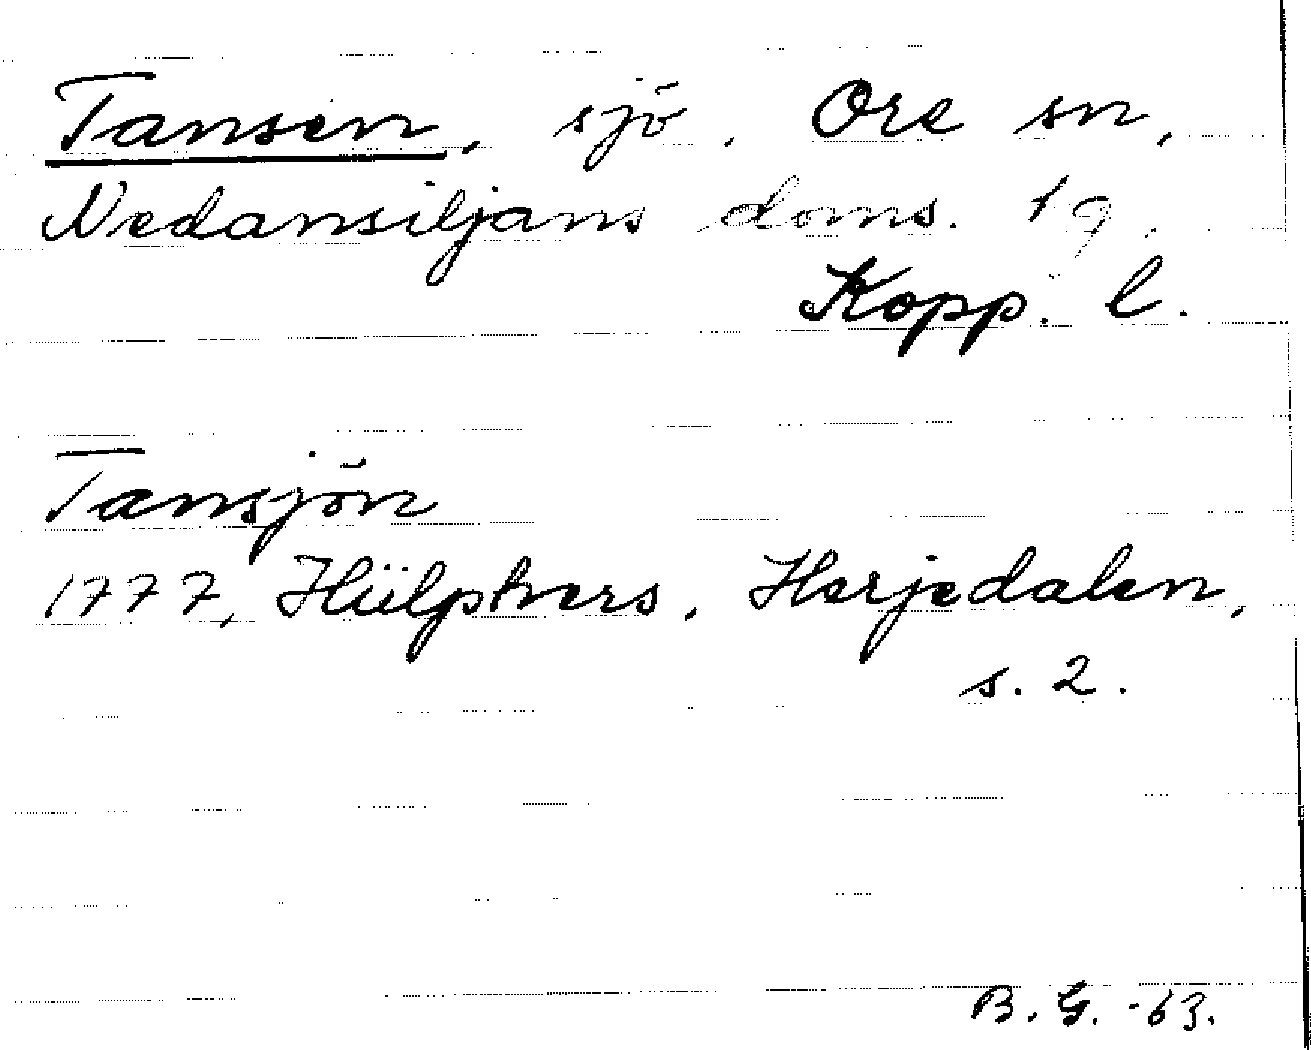 Tansen, sjö, Ore sn,
Nedansiljans doms. 19.
Kopp. l.
Tansjön
1777, Hülphers, Herjedalen,
s. 2.
B. G. -63.